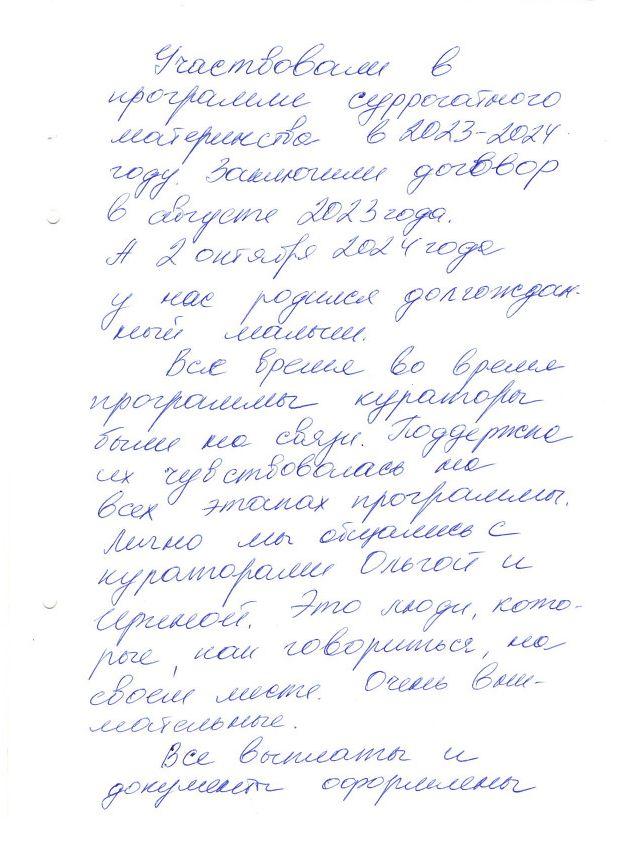 Участвовали в
программе суррогатного
материнства в 2023-2024
году. Заключили договор
в августе 2023 года.
А 2 октября 2024 года
у нас родился долгождан-
ный малыш.
Все время во время
программы кураторы
были на связи. Поддержка
их чувствовалась на
всех этапах программы.
Лично мы общались с
кураторами Ольгой и
Ириной. Это люди, кото-
рые, как говориться, на
своем месте. Очень вни-
мательные.
Все выплаты и
документы оформлены